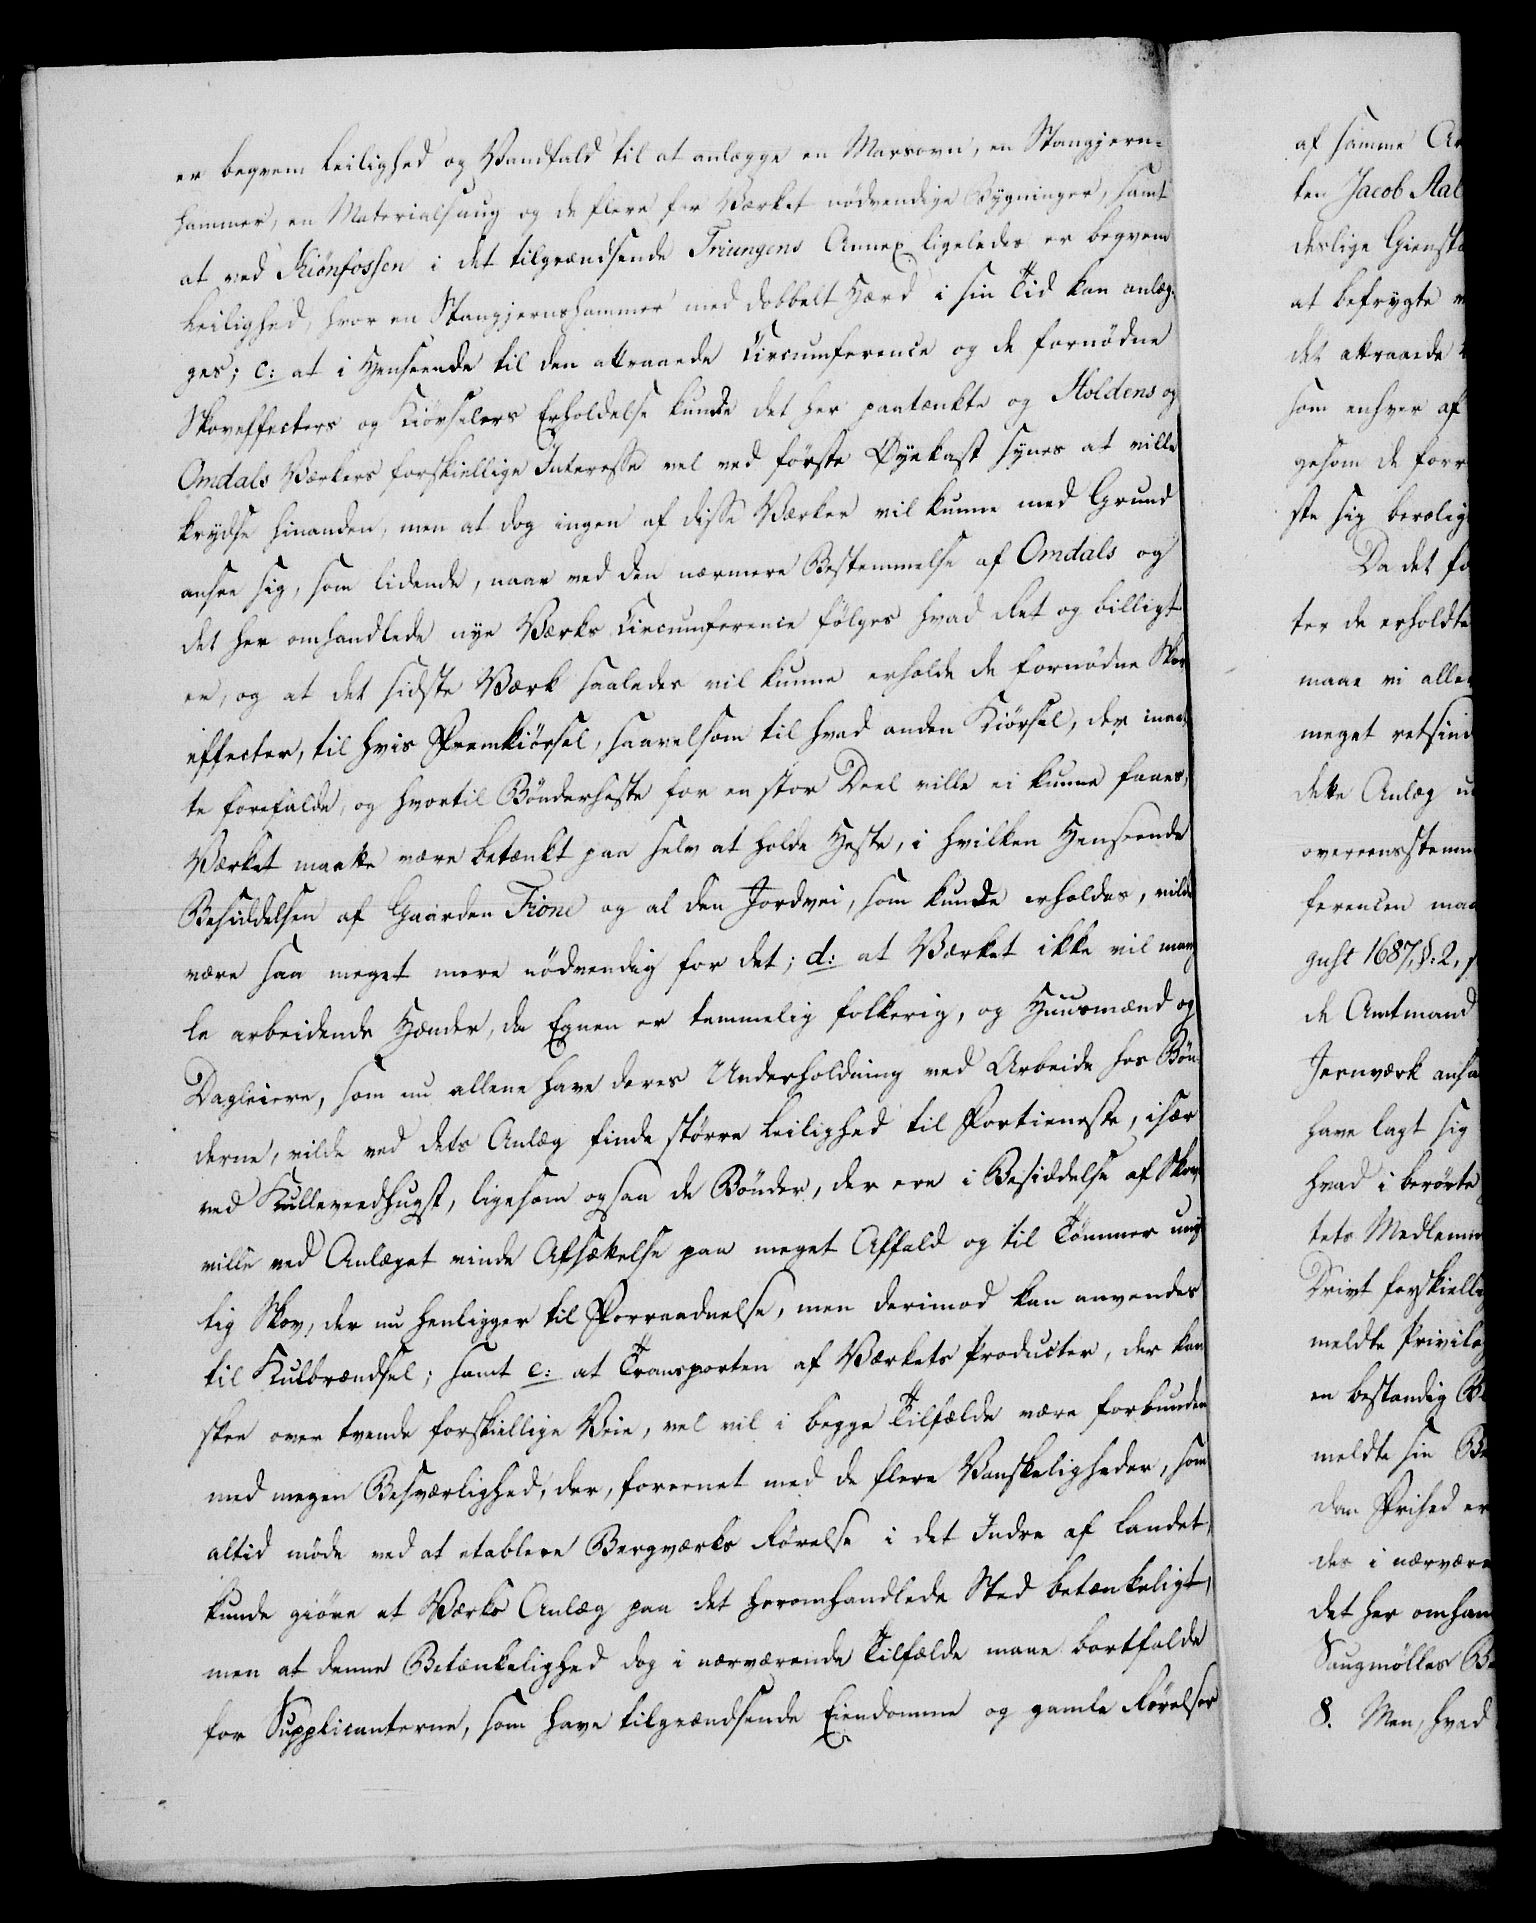 er beqvem Leilighed og Vandfald til at anlægge en Marsovn, en Stangjern-
hammer, en Materialsaug og de flere for Værket nödvendige Bygninger, samt
at ved Kiönfossen i det tilgrændsende Triungens Annex ligeledes er beqvem
Leilighed, hvor en Stangjernshammer med dobbelt Hærd i sin Tid kan anlæg-
ges; c: at i Henseende til den attraaede Circumference og de fornödne
Skoveffecters og Kiörselers Erholdelse kunde det her paatænkte og Holdens og
Omdals Værkers forskiellige Interesse vel ved förste Øyekast synes at ville
krydse hinanden, men at dog ingen af disse Værker vil kunne med Grund
ansee sig, som lidende, naar ved den nærmere Bestemmelse af Omdals og
det her omhandlede nye Værks Circumference fölges hvad Ret og billigt
er, og at det sidste Værk saaledes vil kunne erholde de fornödne Skov
effecter, til hvis Fremkiörsel, saavelsom til hvad anden Kiörsel, der maat
te forefalde, og hvortil Bönderheste for en stor Deel ville ei kunne faaes,
Værket maatte være betænkt paa selv at holde Heste, i hvilken Henseende
Besiddelsen af Gaarden Fione og al den Jordvei, som kunde erholdes, vilde
være saa meget mere nödvendig for det; d: at Værket ikke vil mang
le arbeidende Hænder, da Egnen er temmelig folkerig, og Huusmænd og
Dagleiere, som nu allene have deres Underholdning ved Arbeide hos Bön
derne, vilde ved dets Anlæg finde större Leilighed til Fortieneste, især
ved Kulleveedhugst, ligesom ogsaa de Bönder, der ere i Besiddelse af Skov
ville ved Anlæget vinde Afsættelse paa meget Affald og til Tömmer unyt
tig Skov, der nu henligger til Forraadnelse, men derimod kan anvendes
til Kulbrændsel; samt e: at Transporten af Værkets Producter, der kan
skee over tvende forskiellige Veie, vel vil i begge Tilfælde være forbunden
med megen Besværlighed, der, foreenet med de flere Vanskeligheder, som
altid möde ved at etablere Bergværks Rörelse i det Indre af Landet,
kunde giöre et Værks Anlæg paa det heromhandlede Sted betænkeligt,
men at denne Betænkelighed dog i nærværende Tilfælde maae bortfalde
for Supplicanterne, som have tilgrændsende Eiendomme og gamle Rörelser
af samme
ten Jacob Aal
deslige Giensta
at befrygte
det attraaede
som enhver af
gesom de forr
ste sig berolig
Da det
ter de erholdte
maae vi alle
meget retsind
dette Anlæg
overeensstemm
ferencen maa
gust 1687, §: 2,
de Amtmand
Jernværk ansaa
have lagt sig
hvad i berörte
tets Medlemm
Drivt forskiellig
meldte Privileg
en bestandig
meldte sin
dan Frihed er
des i nærvære
det her omhan
Saugmölles
8. Men, hvad